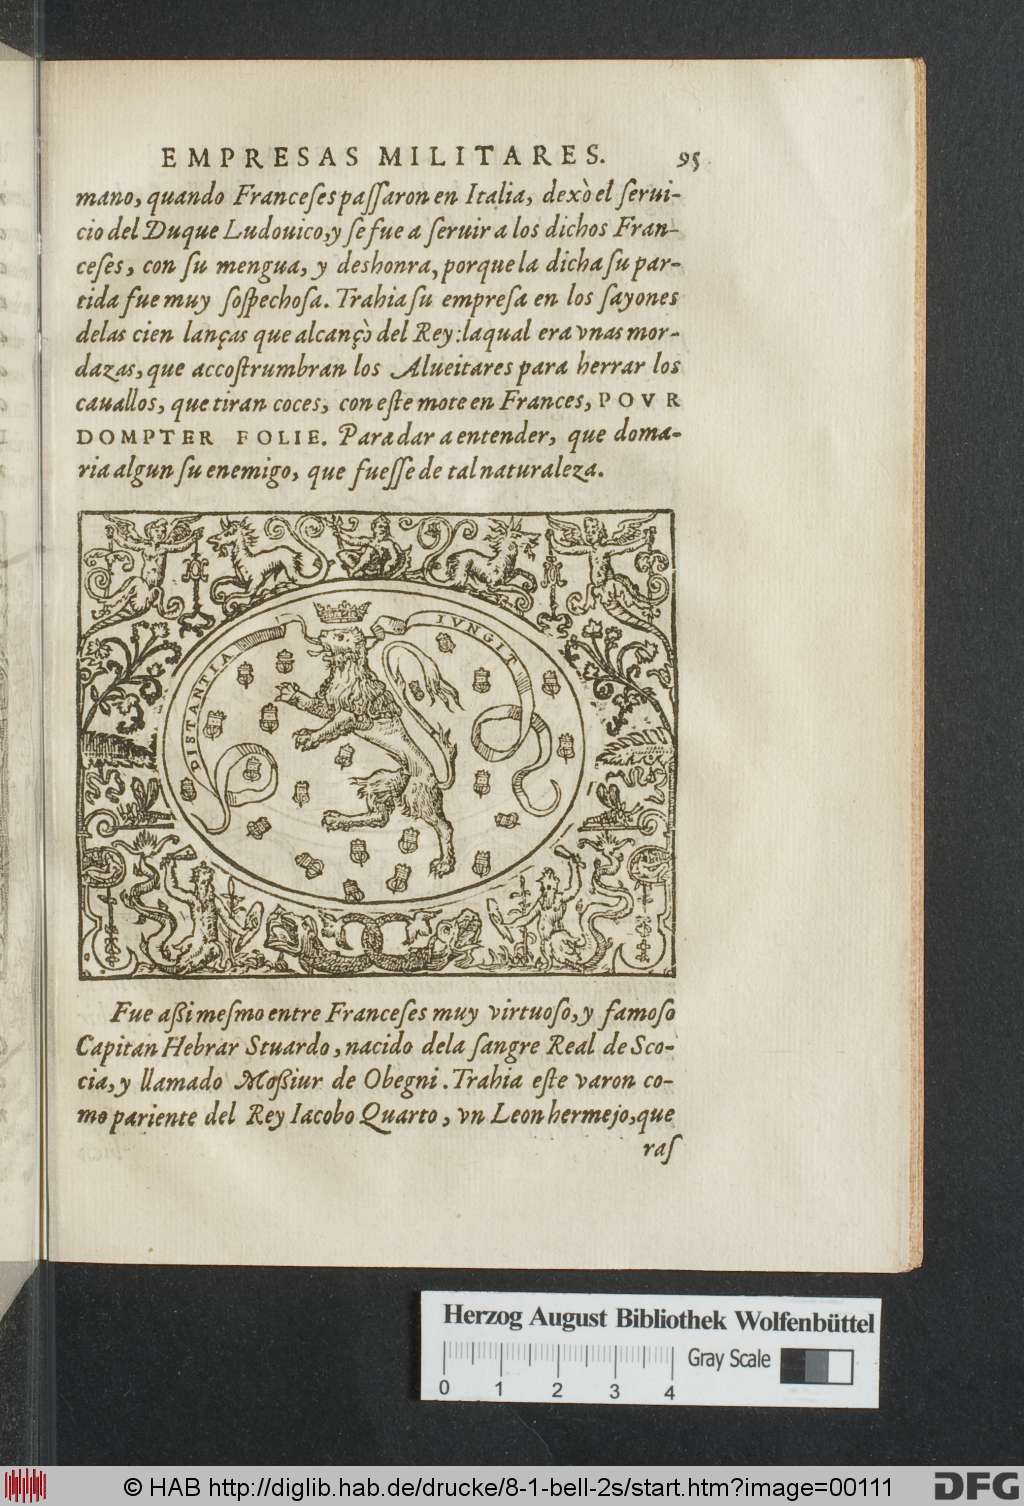 EMPRESAS MILITARES. 95
mano, quando Franceſes paſſaron en Italia, dexò el ſerui-
cio del Duque Ludouico, y ſe fue a ſeruir a los dichos Fran-
ceſes, con ſu mengua, y deshonra, porque la dicha ſu par-
tida fue muy ſoſpechoſa. Trahia ſu empreſa en los ſayones
delas cien lanças que alcançò del Rey: laqual era vnas mor-
dazas, que accoſtrumbran los Alueitares para herrar los
cauallos, que tiran coces, con eſte mote en Frances, POVR
DOMPTER FOLIE. Para dar a entender, que doma-
ria algun ſu enemigo, que fueſſe de tal naturaleza.
DISTANTIA IVNGIT
Fue aßi meſmo entre Franceſes muy virtuoſo, y famoſo
Capitan Hebrar Stuardo, nacido dela ſangre Real de Sco-
cia, y llamado Moßiur de Obegni. Trahia eſte varon co-
mo pariente del Rey Iacobo Quarto, vn Leon hermejo, que
raſ
Herzog August Bibliothek Wolfenbüttel
Gray Scale
0 1 2 3 4
© HAB http://diglib.hab.de/drucke/8-1-bell-2s/start.htm?image=00111
DFG